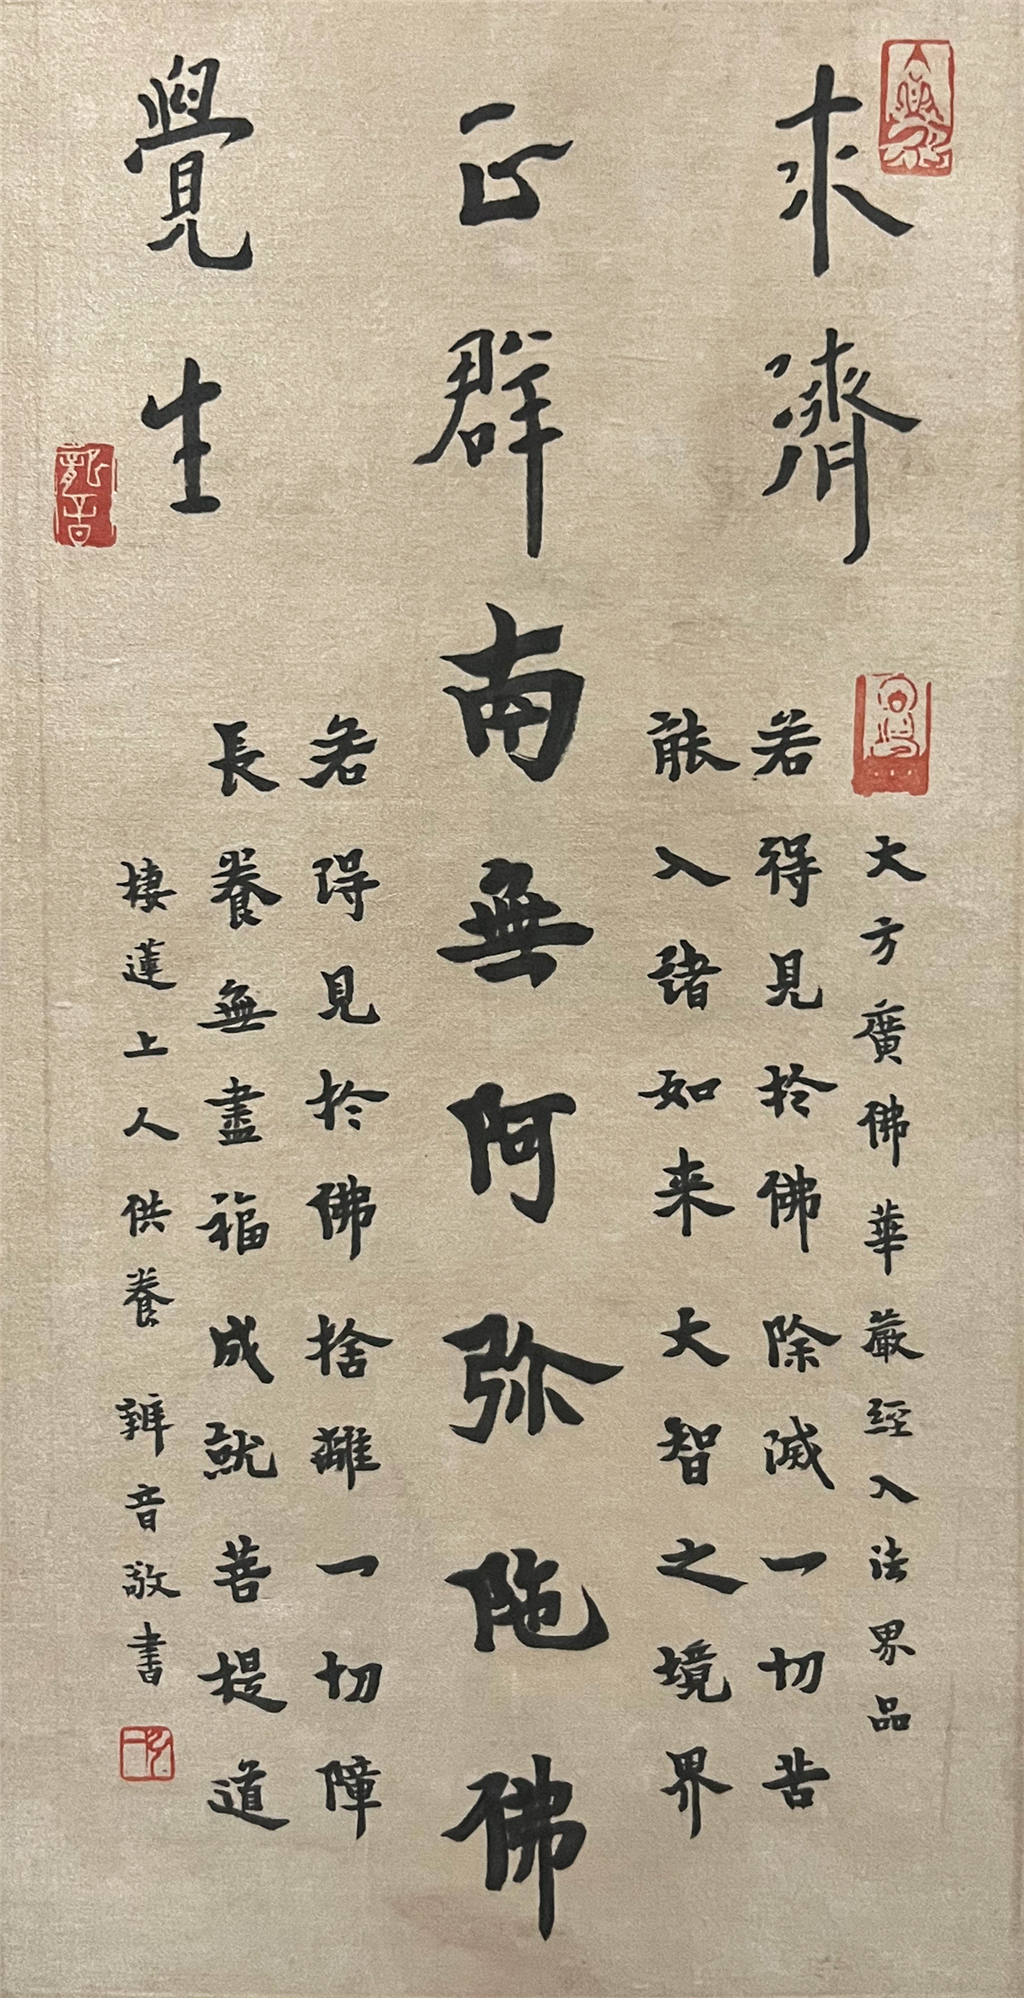 求正覺
濟群生
大方廣佛華嚴經入法界品
若得見於佛除滅一切苦
能入諸如来大智之境界
南無阿弥陀佛
若得見於佛捨離一切障
長養無盡福成就菩提道
棲蓮上人供養 辨音敬書